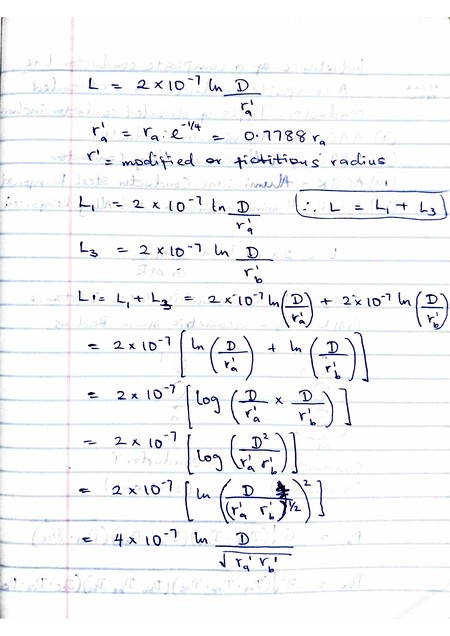 L = 2 × 10⁻⁷ ln D/rₐ'
rₐ' = rₐ·e^(-1/4) = 0.7788 rₐ
r' = modified or fictitious radius
L₁ = 2 × 10⁻⁷ ln D/rₐ' ∴ L = L₁ + L₃
L₃ = 2 × 10⁻⁷ ln D/r_b'
L = L₁ + L₃ = 2 × 10⁻⁷ ln(D/rₐ') + 2 × 10⁻⁷ ln(D/r_b')
= 2 × 10⁻⁷ [ln(D/rₐ') + ln(D/r_b')]
= 2 × 10⁻⁷ [log(D/rₐ' × D/r_b')]
= 2 × 10⁻⁷ [log(D²/rₐ' r_b')]
= 2 × 10⁻⁷ [ln(D/(rₐ' r_b')^(1/2))²]
= 4 × 10⁻⁷ ln D/√(rₐ' r_b')